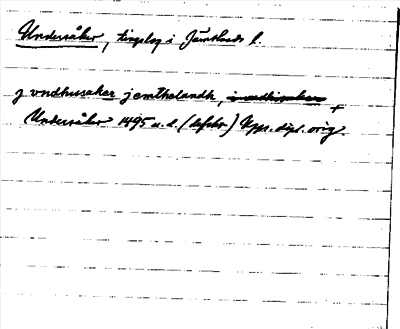 Undersåker, tingslag i Jämtlands l.
j vndhusaker jemthelandh,
Undersåker 1495 u.d. (defekt) Upps. dipl. orig.